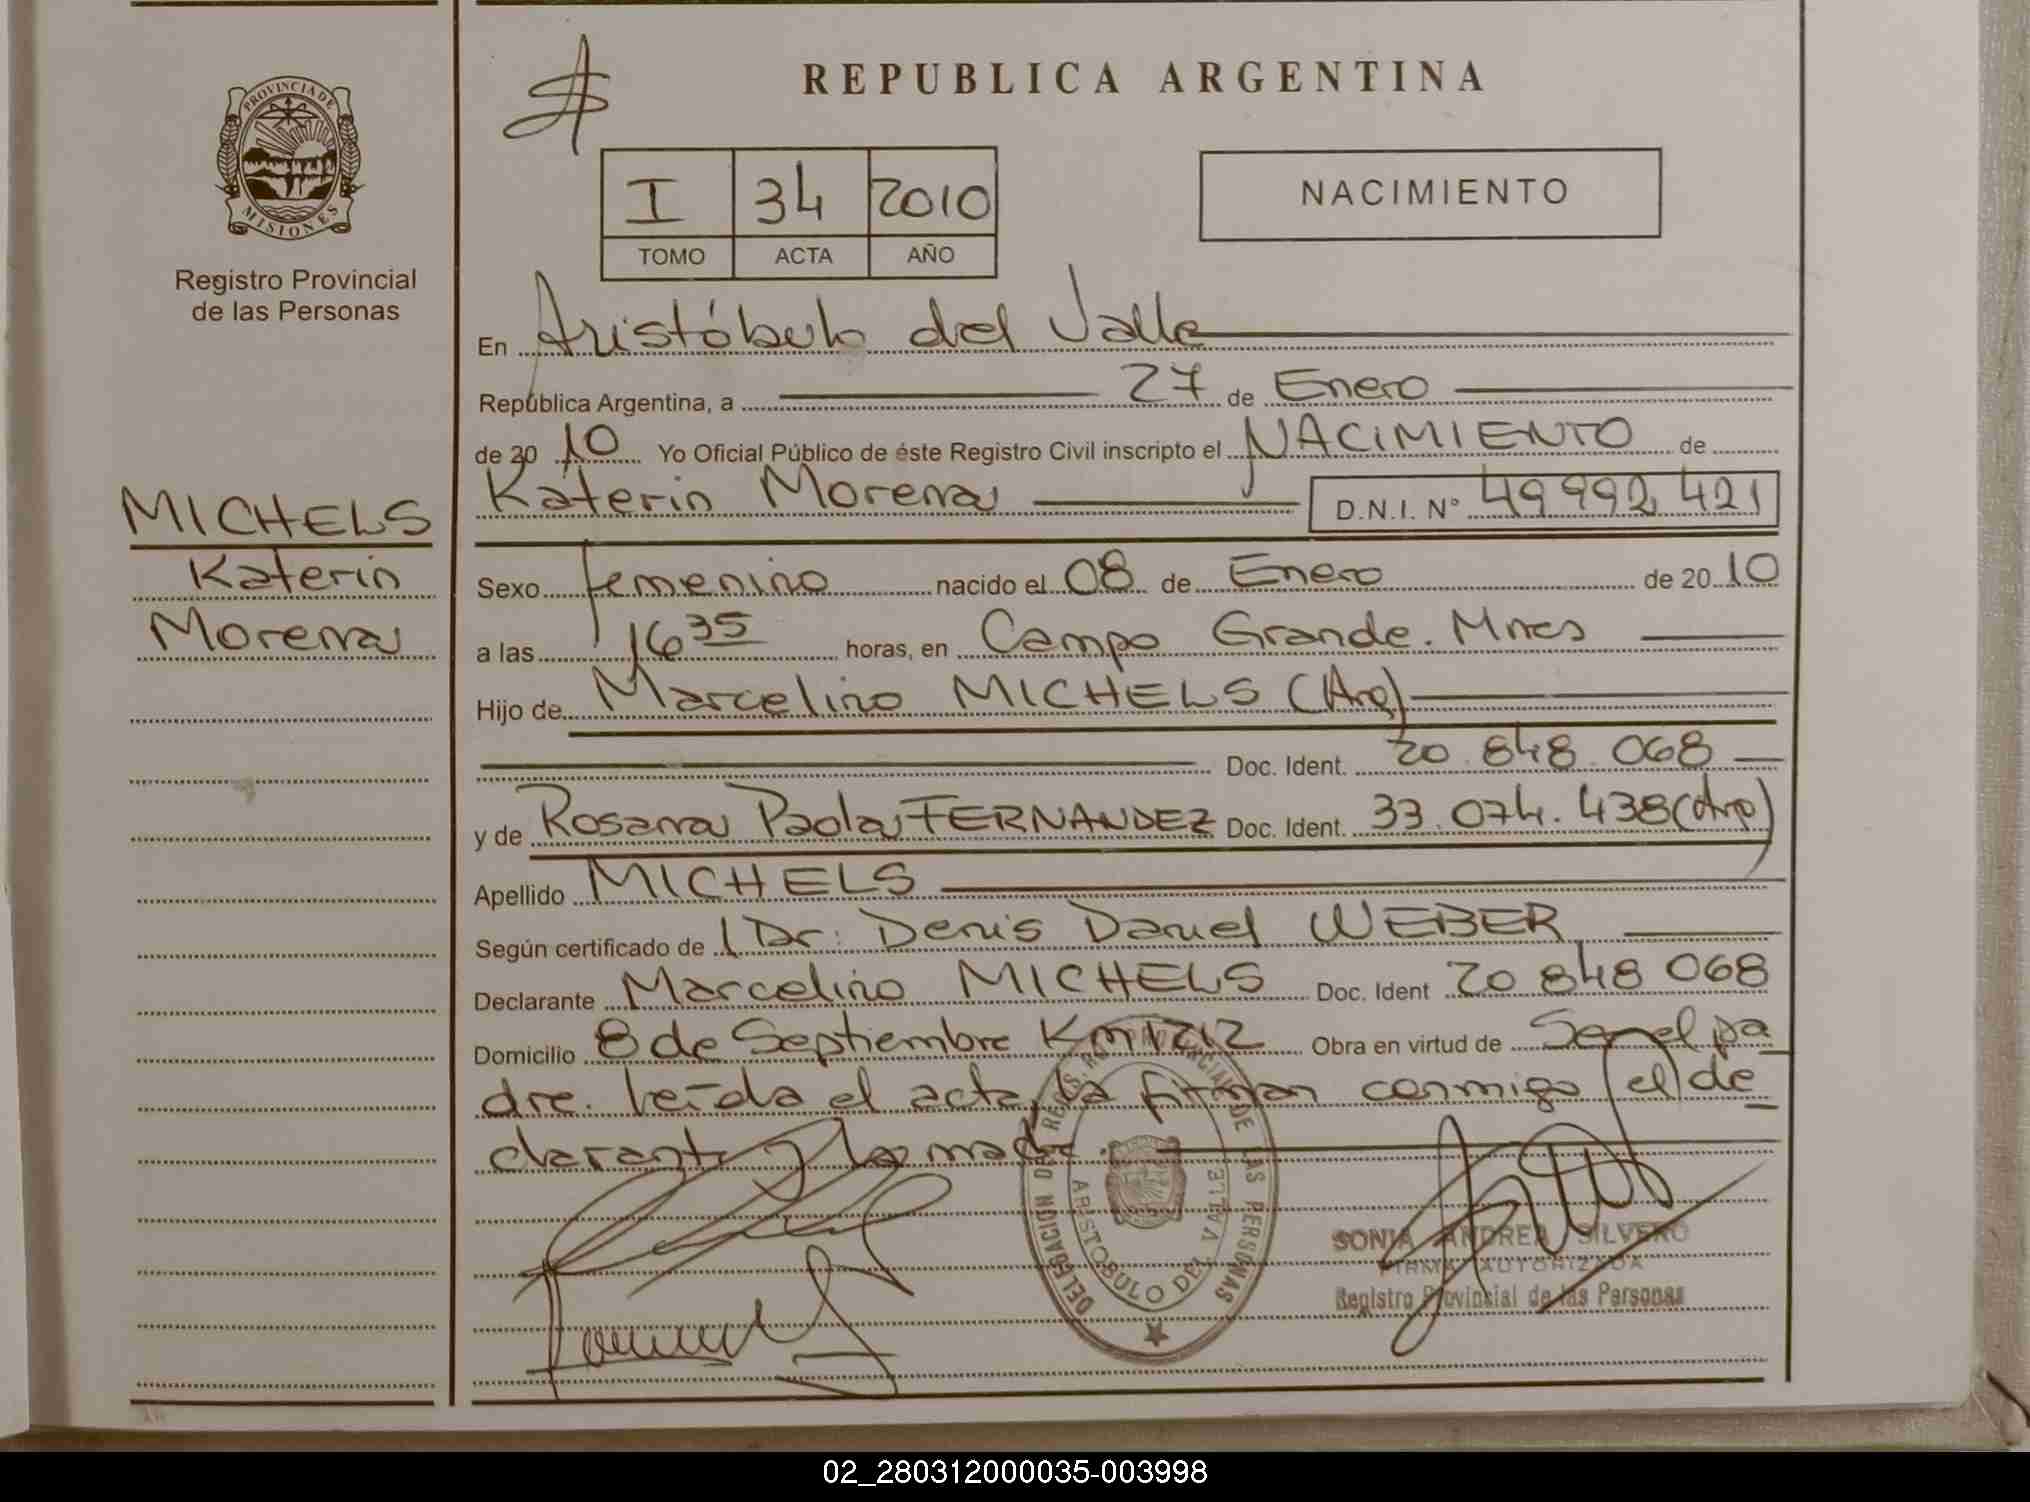 REPUBLICA ARGENTINA
PROVINCIA DE
MISIONES
Registro Provincial
de las Personas
I 34 2010
TOMO ACTA AÑO
NACIMIENTO
En Aristóbulo del Valle
República Argentina, a 27 de Enero
de 20 10 Yo Oficial Público de éste Registro Civil inscripto el NACIMIENTO de
Katerin Morena D.N.I. N° 49 992 421
MICHELS
Katerin
Morena
Sexo femenino nacido el 08 de Enero de 20 10
a las 16 35 horas, en Campo Grande. Mnes
Hijo de Marcelino MICHELS (Arg)
Doc. Ident. 20.848.068
y de Rosana Paola FERNANDEZ Doc. Ident. 33.074.438 (Arg)
Apellido MICHELS
Según certificado de Dr. Denis Daniel WEBER
Declarante Marcelino MICHELS Doc. Ident 20 848 068
Domicilio 8 de Septiembre Km 1212 Obra en virtud de Ser el pa
dre. leída el acta, la firman conmigo el de
clarante y la madre.
DELEGACIÓN DE REGIS. PROVINCIAL DE LAS PERSONAS
ARISTOBULO DEL VALLE
SONIA ANDREA SILVERO
FIRMA AUTORIZADA
Registro Provincial de las Personas
02_280312000035-003998